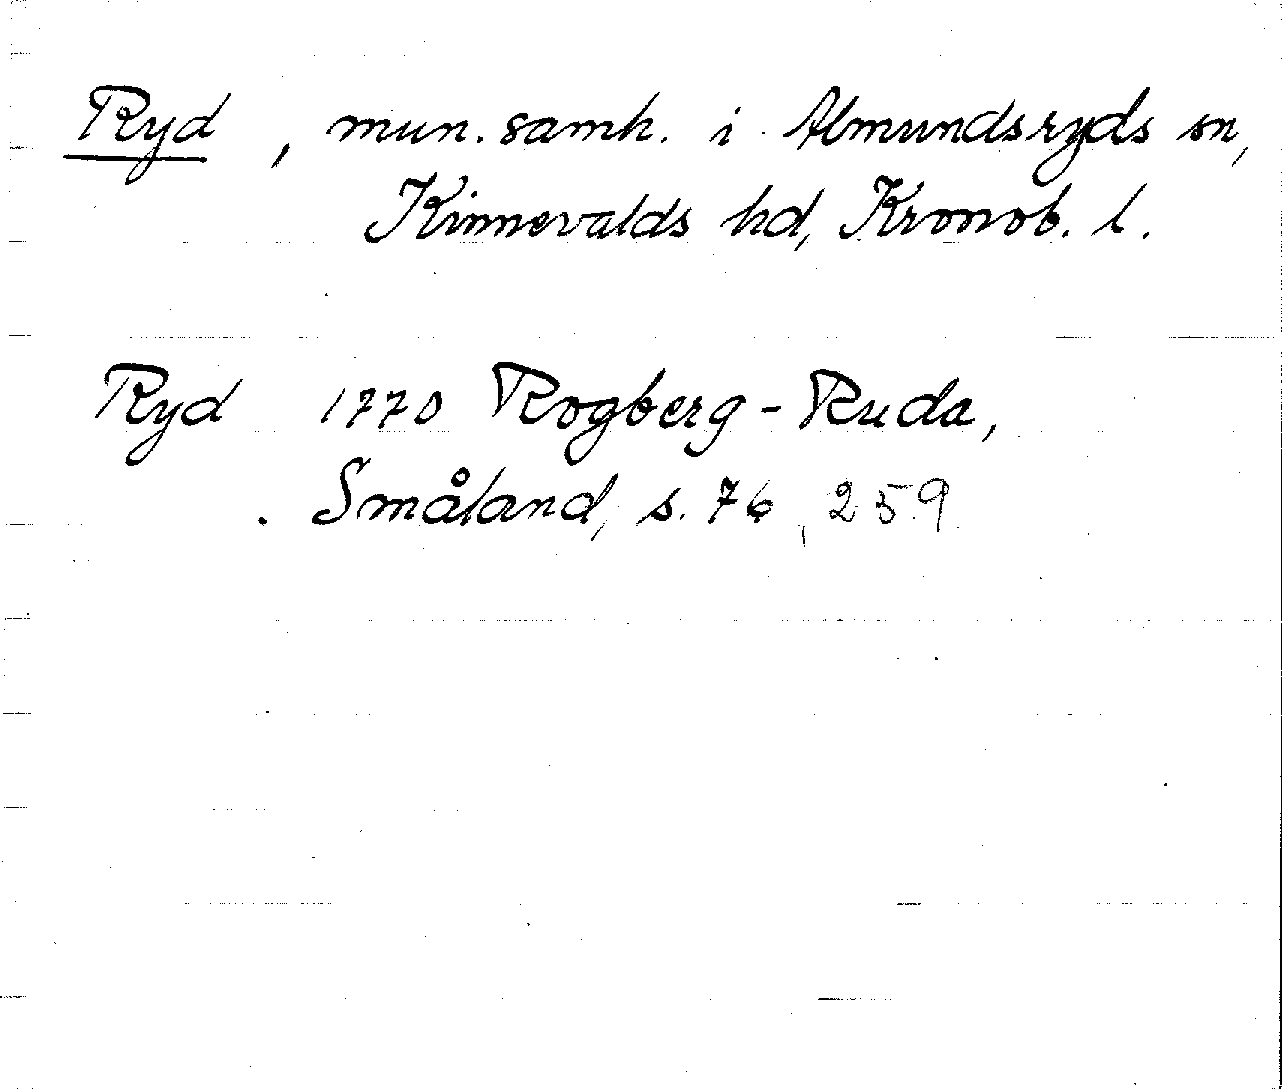 Ryd, mun. samh. i Almundsryds sn,
Kinnevalds hd, Kronob. l.
Ryd 1770 Rogberg-Ruda,
Småland, s. 76, 259